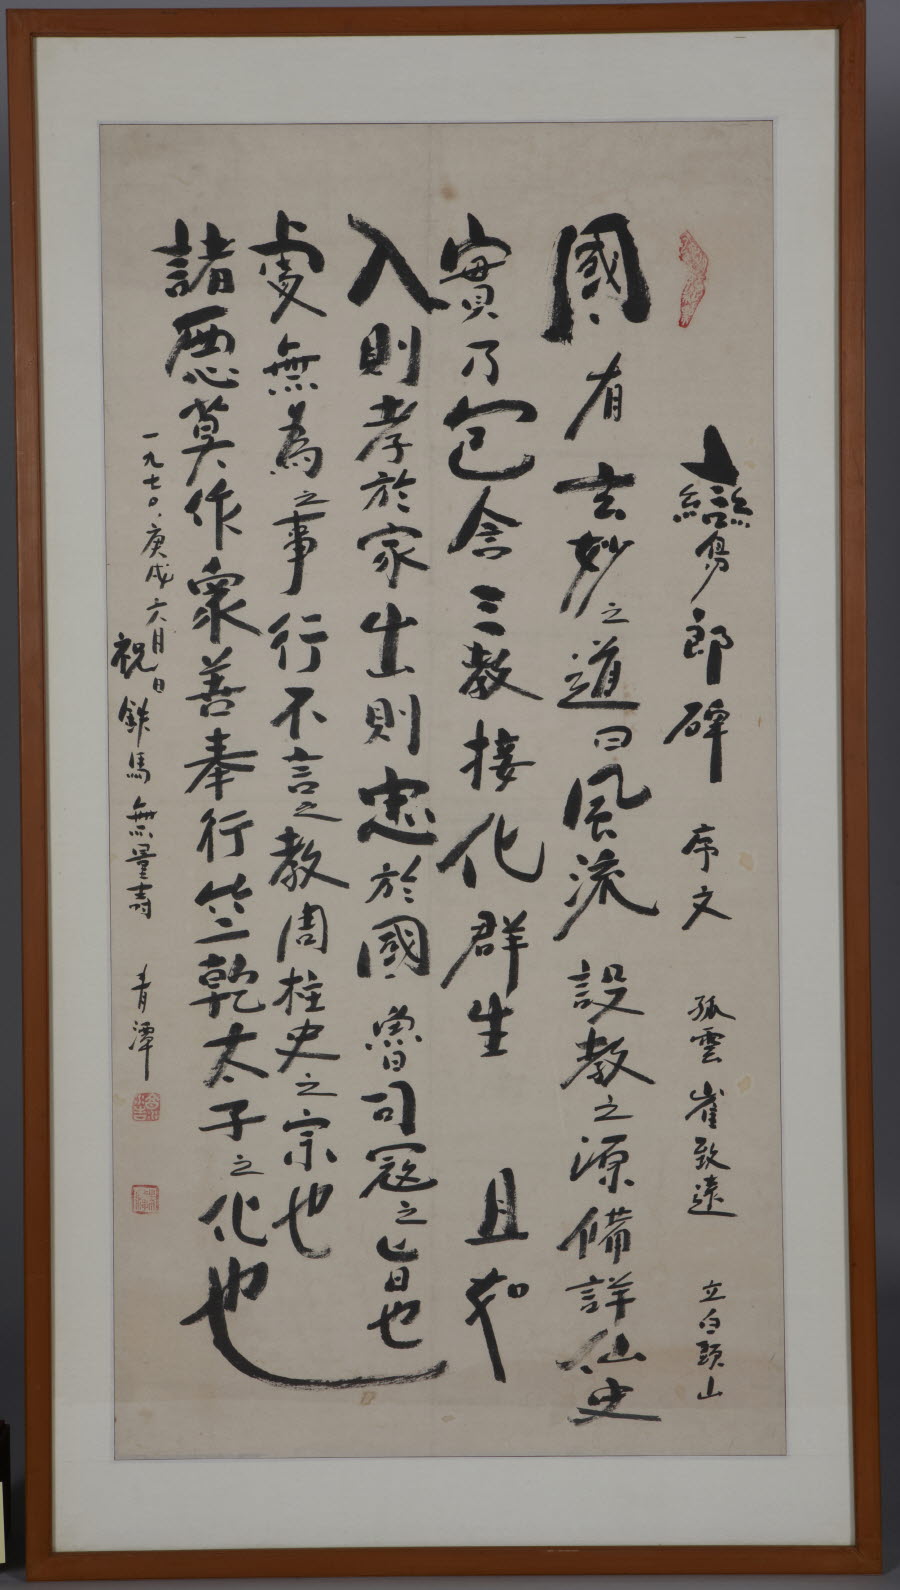 鸞郎碑 序文 孤雲 崔致遠 立白頭山
國有玄妙之道曰風流設教之源備詳仙史
實乃包含三教接化群生 且如
入則孝於家出則忠於國魯司寇之旨也
處無為之事行不言之教周柱史之宗也
諸惡莫作衆善奉行竺乾太子之化也
一九七〇、庚戌六月 日
祝 鉄馬 無量壽 青潭